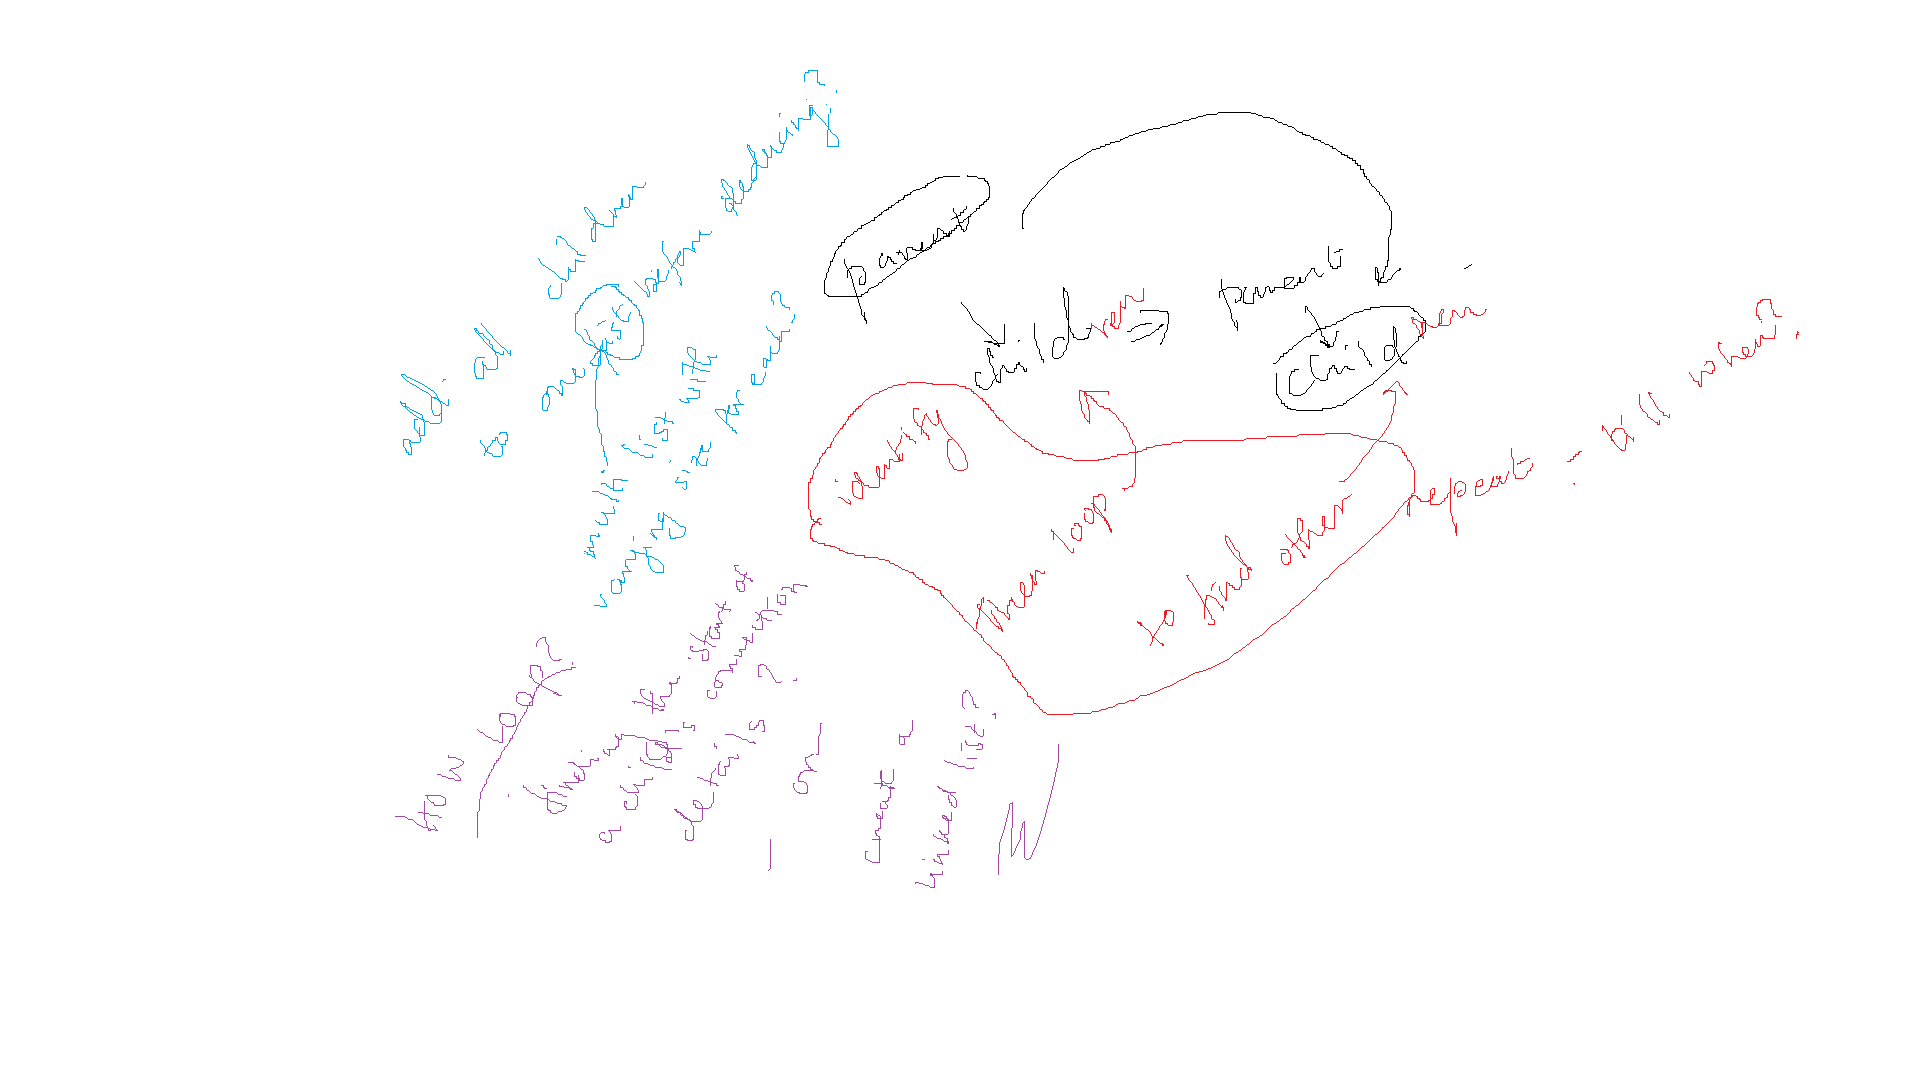 add all children
to one list before deducing?
multi list with
varying size for each?
parent
children => parent
children
identify
then loop
to find other
repeat - till when?
HOW LOOP?
finding the start of
a child's connection
details?
or
create a
linked list?